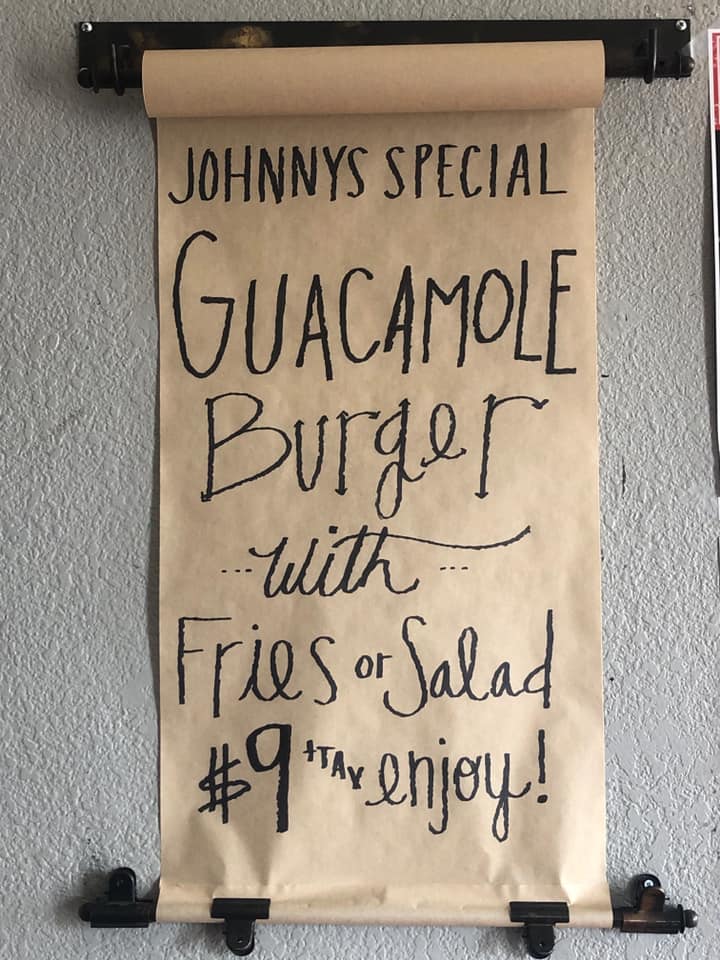 JOHNNYS SPECIAL
GUACAMOLE
Burger
...with...
Fries or Salad
$9 +TAX enjoy!